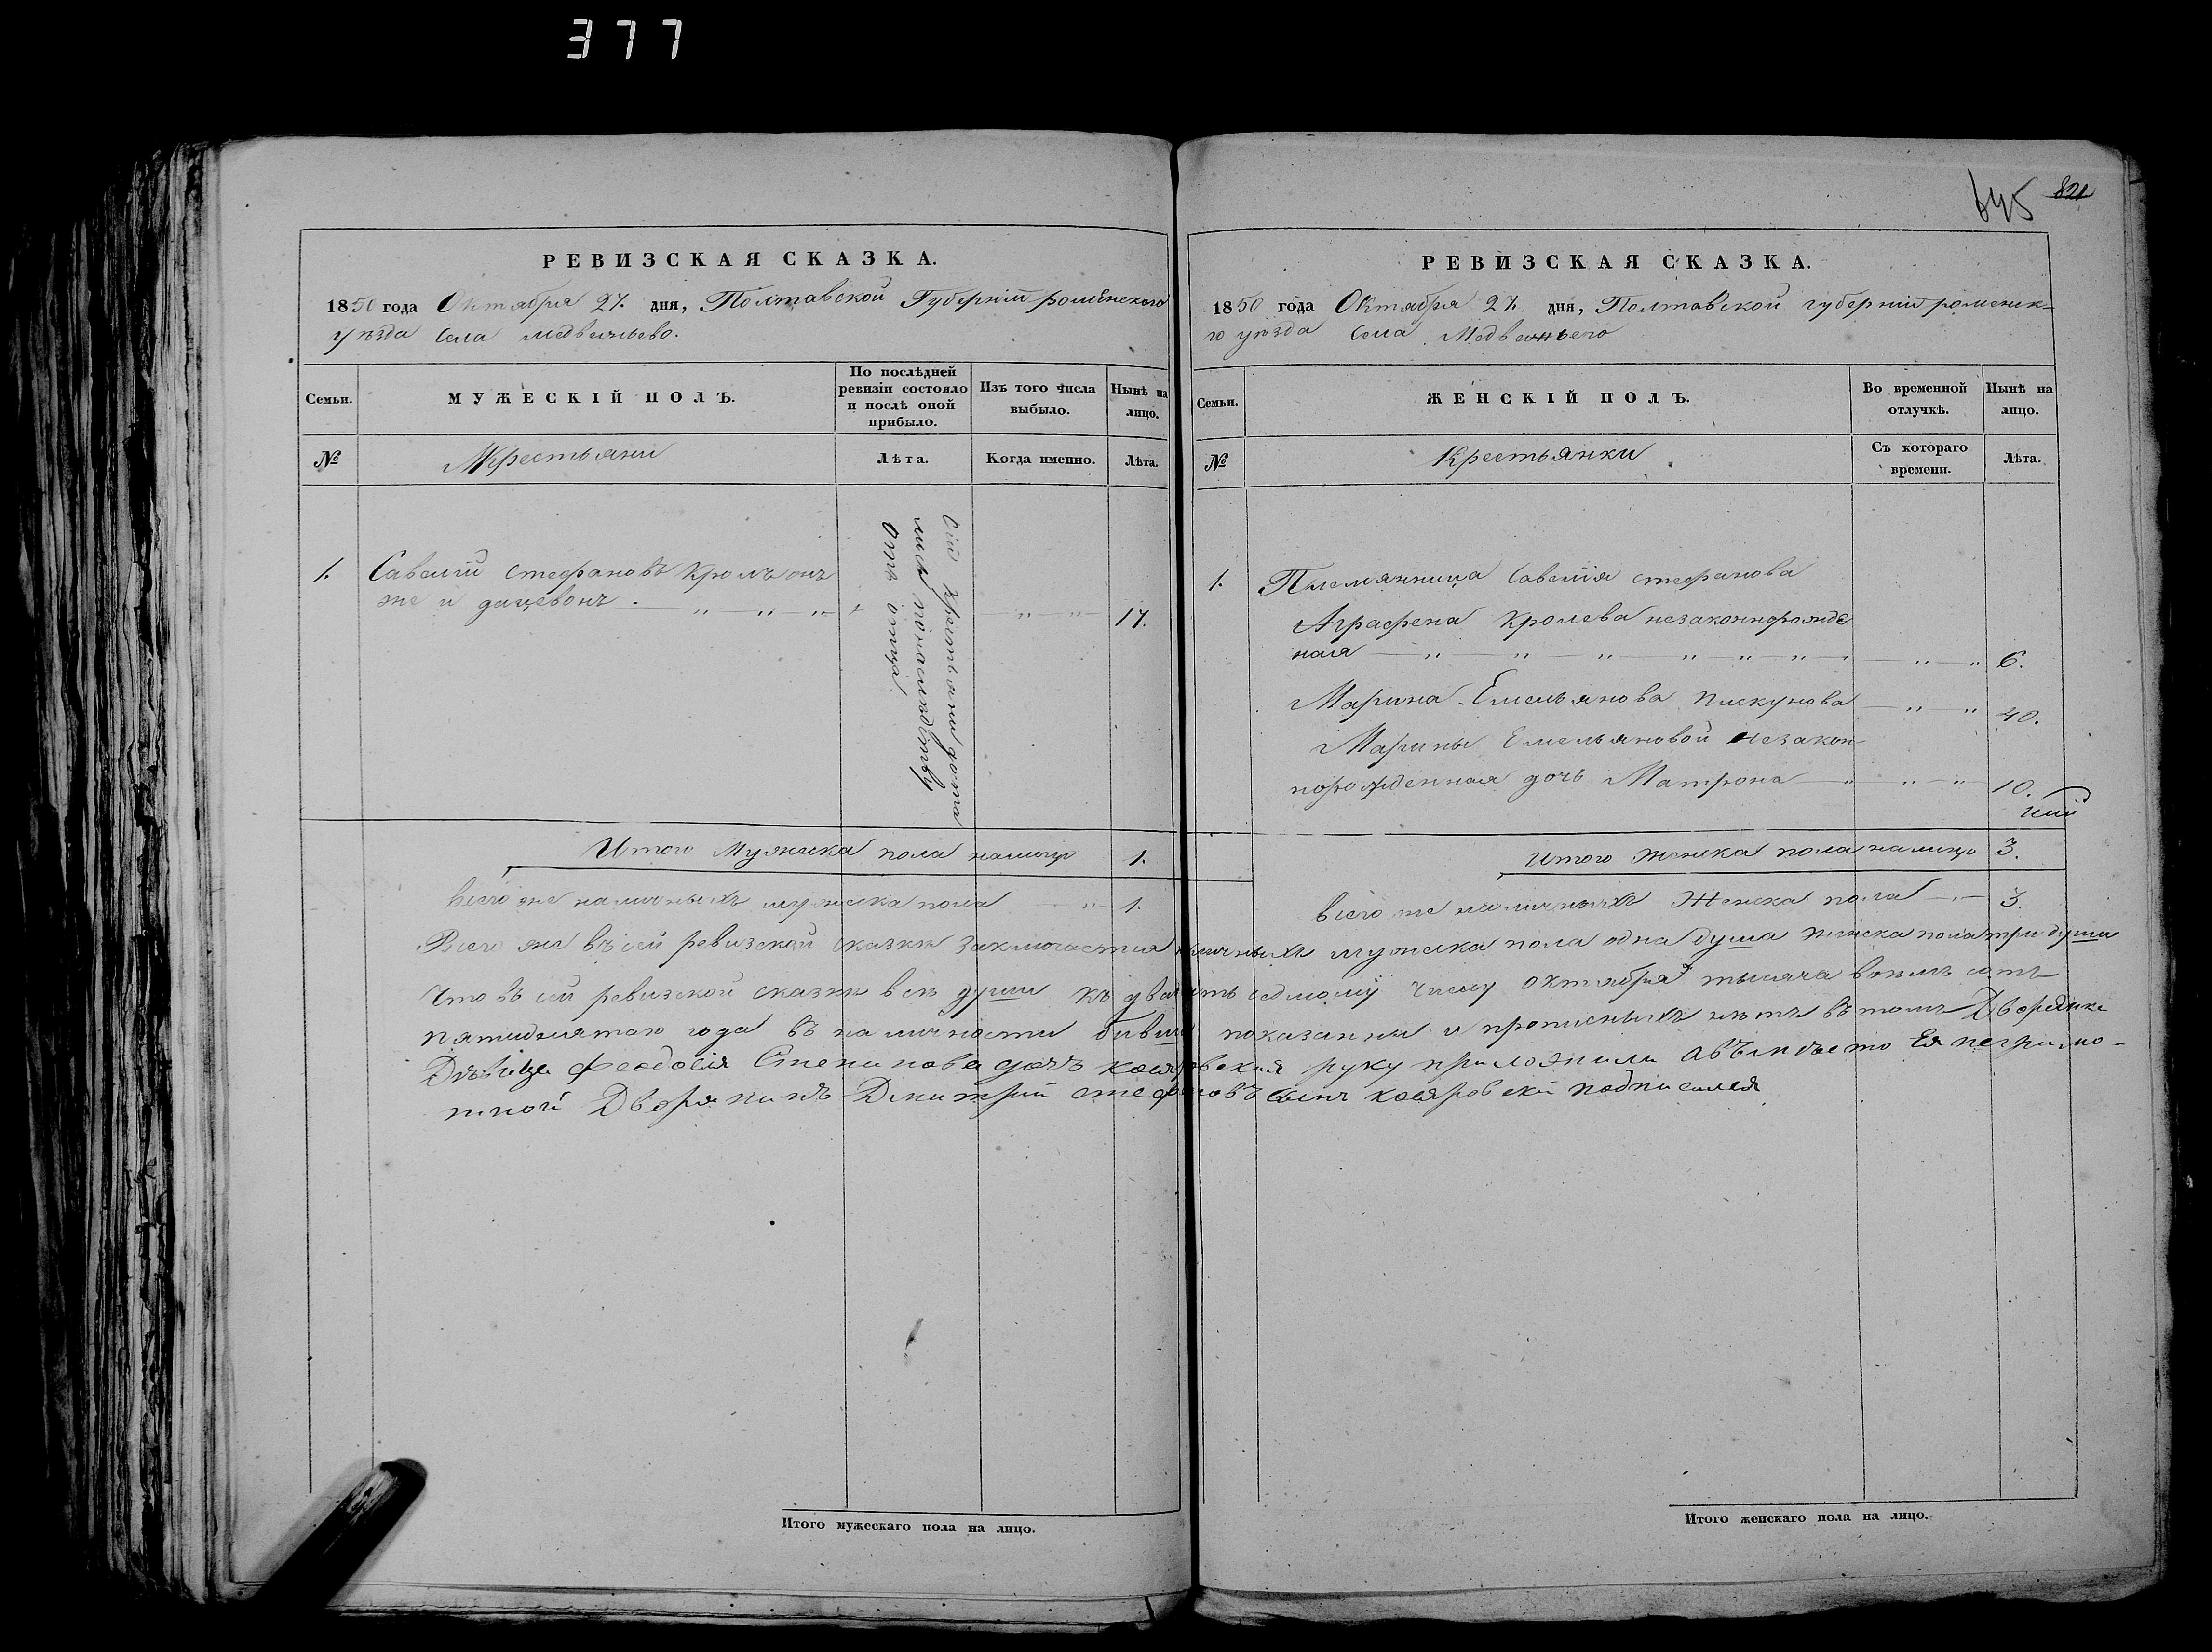 377
645 821
РЕВИЗСКАЯ СКАЗКА.
1850 года Октября 27. дня, Полтавской Губернiи роменского
уѣзда Села Медвежьево.
Семьи.
МУЖЕСКІЙ ПОЛЪ.
По послѣдней
ревизіи состояло
и послѣ оной
прибыло.
Изъ того числа
выбыло.
Нынѣ на
лицо.
№
Крестьяни
Лѣта.
Когда именно.
Лѣта.
1.
Савелiй Стефановъ Кроль онъ
же и
17.
Сiи крестьяни
по наследству
отъ отца
Итого Мужеска пола налицо 1.
Всего же наличныхъ мужеска пола 1.
РЕВИЗСКАЯ СКАЗКА.
1850 года Октября 27. дня, Полтавской губернiи роменск-
го уѣзда Села Медвежьего
Семьи.
ЖЕНСКІЙ ПОЛЪ.
Во временной
отлучкѣ.
Нынѣ на
лицо.
№
Крестьянки
Съ котораго
времени.
Лѣта.
1.
Племянница Савелiя стефанова
Аграфена Кролева незаконнорожде
ная 6.
Марина Емельянова Пискунова 40.
Марины Емельяновой незакон-
норожденная дочь Матрона 10.
Итого женска пола налицо 3.
Всего же наличныхъ Женска пола 3.
Всего же въ сей ревизской сказки заключается наличныхъ мужеска пола одна душа женска пола три души
Что въ сей ревизской сказки всѣ души къ двадцать седмому числу октября тысяча восемъ сотъ
пятидесятаго года въ наличности бывши показанны и прописныхъ нѣтъ въ томъ Дворянка
Дѣвица Феодосiя Степанова дочь руку приложила авъмѣсто Ея неграмо-
тной Дворянинъ Дмитрий стефановъ сынъ подписался
Итого мужескаго пола на лицо.
Итого женскаго пола на лицо.